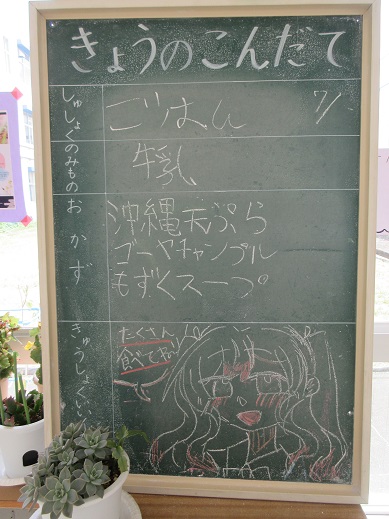 きょうのこんだて
しゅしょく
ごはん 7/
のみもの
牛乳
おかず
沖縄天ぷら
ゴーヤチャンプル
もずくスープ
きゅうしょくい
たくさん
食べてね!